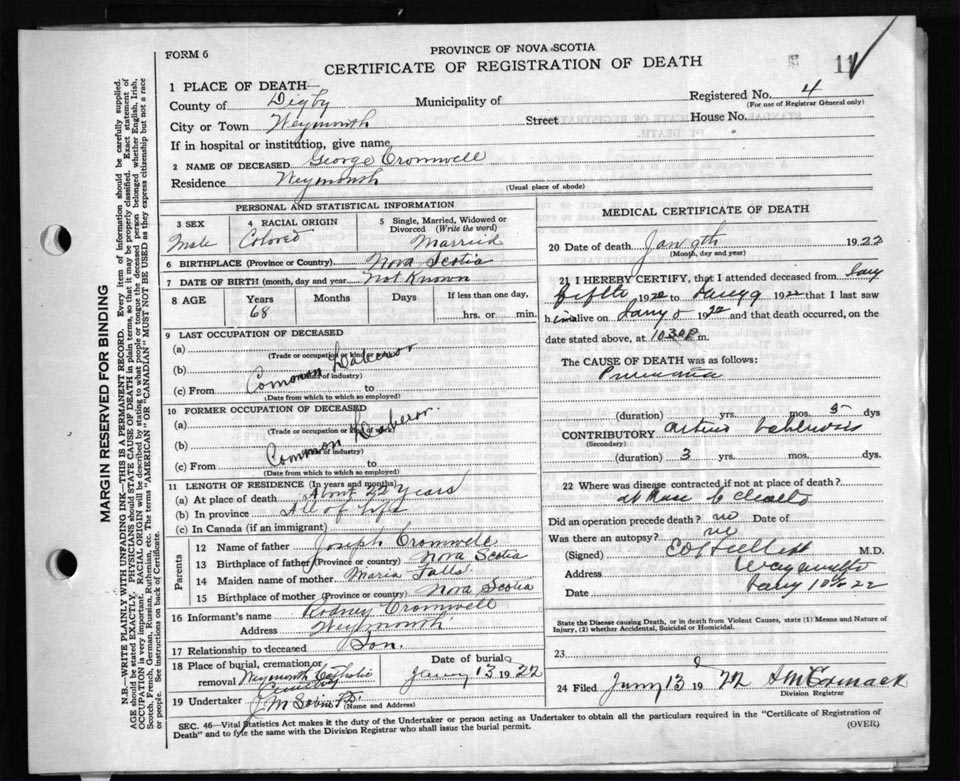 FORM 6
PROVINCE OF NOVA SCOTIA
CERTIFICATE OF REGISTRATION OF DEATH
11
1 PLACE OF DEATH—
County of Digby Municipality of Registered No. 4
(For use of Registrar General only)
City or Town Weymouth Street House No.
If in hospital or institution, give name
2 NAME OF DECEASED George Cromwell
Residence Weymouth
(Usual place of abode)
PERSONAL AND STATISTICAL INFORMATION
3 SEX
Male
4 RACIAL ORIGIN
Colored
5 Single, Married, Widowed or Divorced (Write the word)
Married
6 BIRTHPLACE (Province or Country) Nova Scotia
7 DATE OF BIRTH (month, day and year) Not Known
8 AGE Years Months Days If less than one day,
68 hrs. or min.
9 LAST OCCUPATION OF DECEASED
(a)
(Trade or occupation or kind of work)
(b) Common Laberor
(Name of industry)
(c) From to
(Date from which to which so employed)
10 FORMER OCCUPATION OF DECEASED
(a)
(Trade or occupation or kind of work)
(b) Common Laberor.
(Name of industry)
(c) From to
(Date from which to which so employed)
11 LENGTH OF RESIDENCE (In years and months)
(a) At place of death About 22 years
(b) In province All of life
(c) In Canada (if an immigrant)
Parents
12 Name of father Joseph Cromwell
13 Birthplace of father (Province or country) Nova Scotia
14 Maiden name of mother Maria
15 Birthplace of mother (Province or country) Nova Scotia
16 Informant's name Rodney Cromwell
Address Weymouth
17 Relationship to deceased Son.
18 Place of burial, cremation or removal Weymouth Catholic Cemetery
Date of burial Jany 13 1922
19 Undertaker J M
(Name and Address)
MEDICAL CERTIFICATE OF DEATH
20 Date of death Jan 9th 1922
(Month, day and year)
21 I HEREBY CERTIFY, that I attended deceased from Jany
fifth 1922 to Jany 9 1922 that I last saw
him alive on Jany 1922 and that death occurred, on
date stated above, at 10.30 P m.
The CAUSE OF DEATH was as follows:
(duration) yrs. mos. 5 dys
CONTRIBUTORY
(Secondary)
(duration) 3 yrs. mos. dys.
22 Where was disease contracted if not at place of death?
at
Did an operation precede death? no Date of
Was there an autopsy? no
(Signed) M.D.
Address Weymouth
Date Jany 10th 22
State the Disease causing Death, or in death from Violent Causes, state (1) Means and Nature of Injury, (2) whether Accidental, Suicidal or Homicidal.
23
24 Filed Jany 13 1922
Division Registrar
SEC. 46—Vital Statistics Act makes it the duty of the Undertaker or person acting as Undertaker to obtain all the particulars required in the "Certificate of Registration of
Death" and to fyle the same with the Division Registrar who shall issue the burial permit. (OVER)
MARGIN RESERVED FOR BINDING
N.B.—WRITE PLAINLY WITH UNFADING INK—THIS IS A PERMANENT RECORD. Every item of information should be carefully supplied.
AGE should be stated EXACTLY. PHYSICIANS should STATE CAUSE OF DEATH in plain terms, so that it may be properly classified. Exact statement of
OCCUPATION is very important. RACIAL ORIGIN will be described by stating to what people or tongue the deceased person belonged whether English, Irish,
Scotch, French, German, Russian, Ruthenian, etc. The terms "AMERICAN" OR "CANADIAN" MUST NOT BE USED as they express citizenship but not a race
or people. See instructions on back of Certificate.